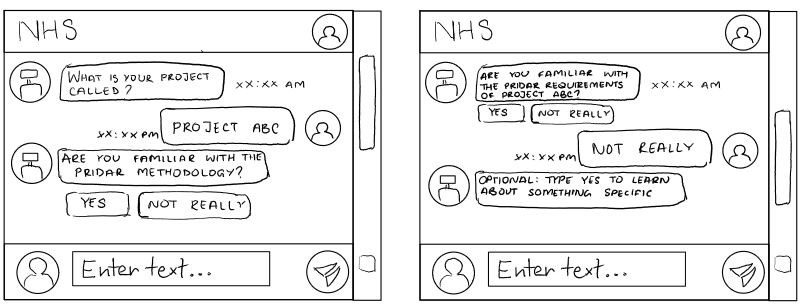 NHS
WHAT IS YOUR PROJECT
CALLED?
XX:XX AM
XX:XX PM
PROJECT ABC
ARE YOU FAMILIAR WITH THE
PRIDAR METHODOLOGY?
YES
NOT REALLY
Enter text...
NHS
ARE YOU FAMILIAR WITH
THE PRIDAR REQUIREMENTS
OF PROJECT ABC?
XX:XX AM
YES
NOT REALLY
XX:XX PM
NOT REALLY
OPTIONAL: TYPE YES TO LEARN
ABOUT SOMETHING SPECIFIC
Enter text...